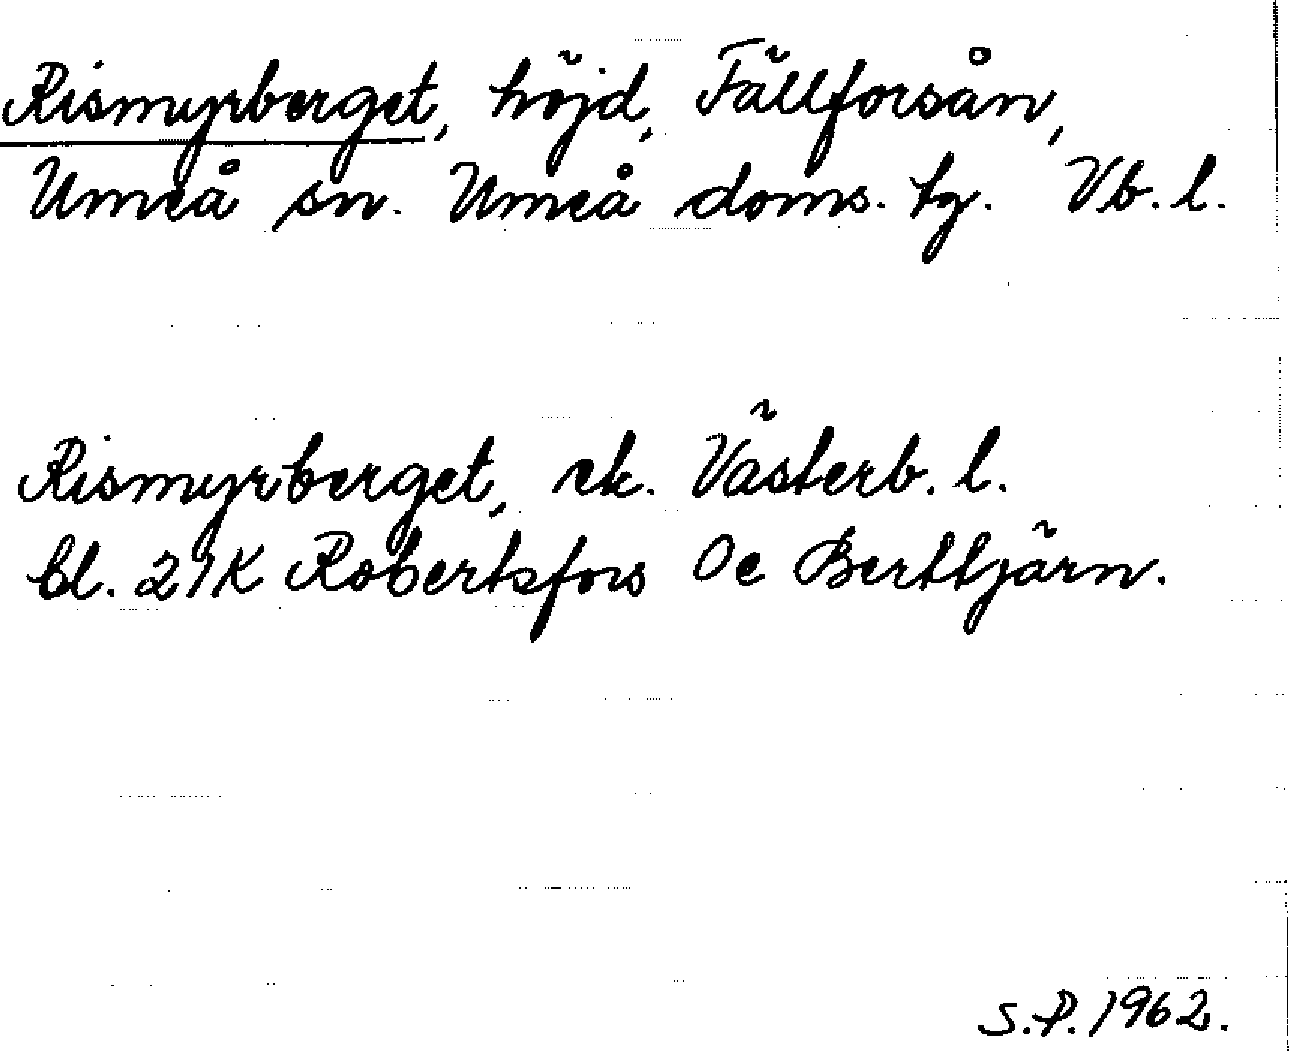 Rismyrberget, höjd, Fällforsån,
Umeå sn. Umeå doms. tg. Vb. l.
Rismyrberget, ek. Västerb. l.
bl. 21K Robertsfors 0e Berttjärn.
S.P. 1962.